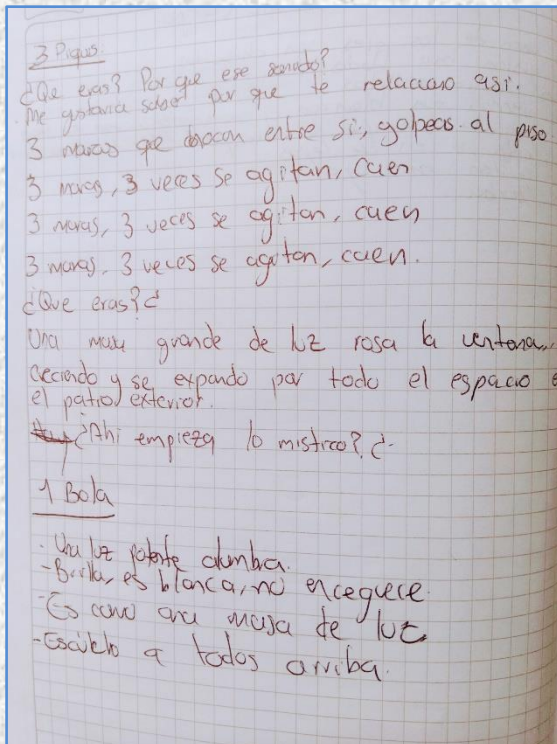 3 Piquos.
¿Qe eras? Por que ese sonido?
Me gustaria saber por que te relaciono asi.
3 maras que chocan entre si, golpeas al piso
3 maras, 3 veces se agitan, caen
3 maras, 3 veces se agitan, caen
3 maras, 3 veces se agitan, caen.
¿Que eras?¿
Una masa grande de luz rosa la ventana,
creciendo y se expando por todo el espacio e
el patio exterior.
¿Ahi empieza lo mistico? ¿.
1 Bola
- Una luz potente alumbra.
- Brilla, es blanca, no enceguece.
- Es como una masa de luz
- Escucho a todos arriba.